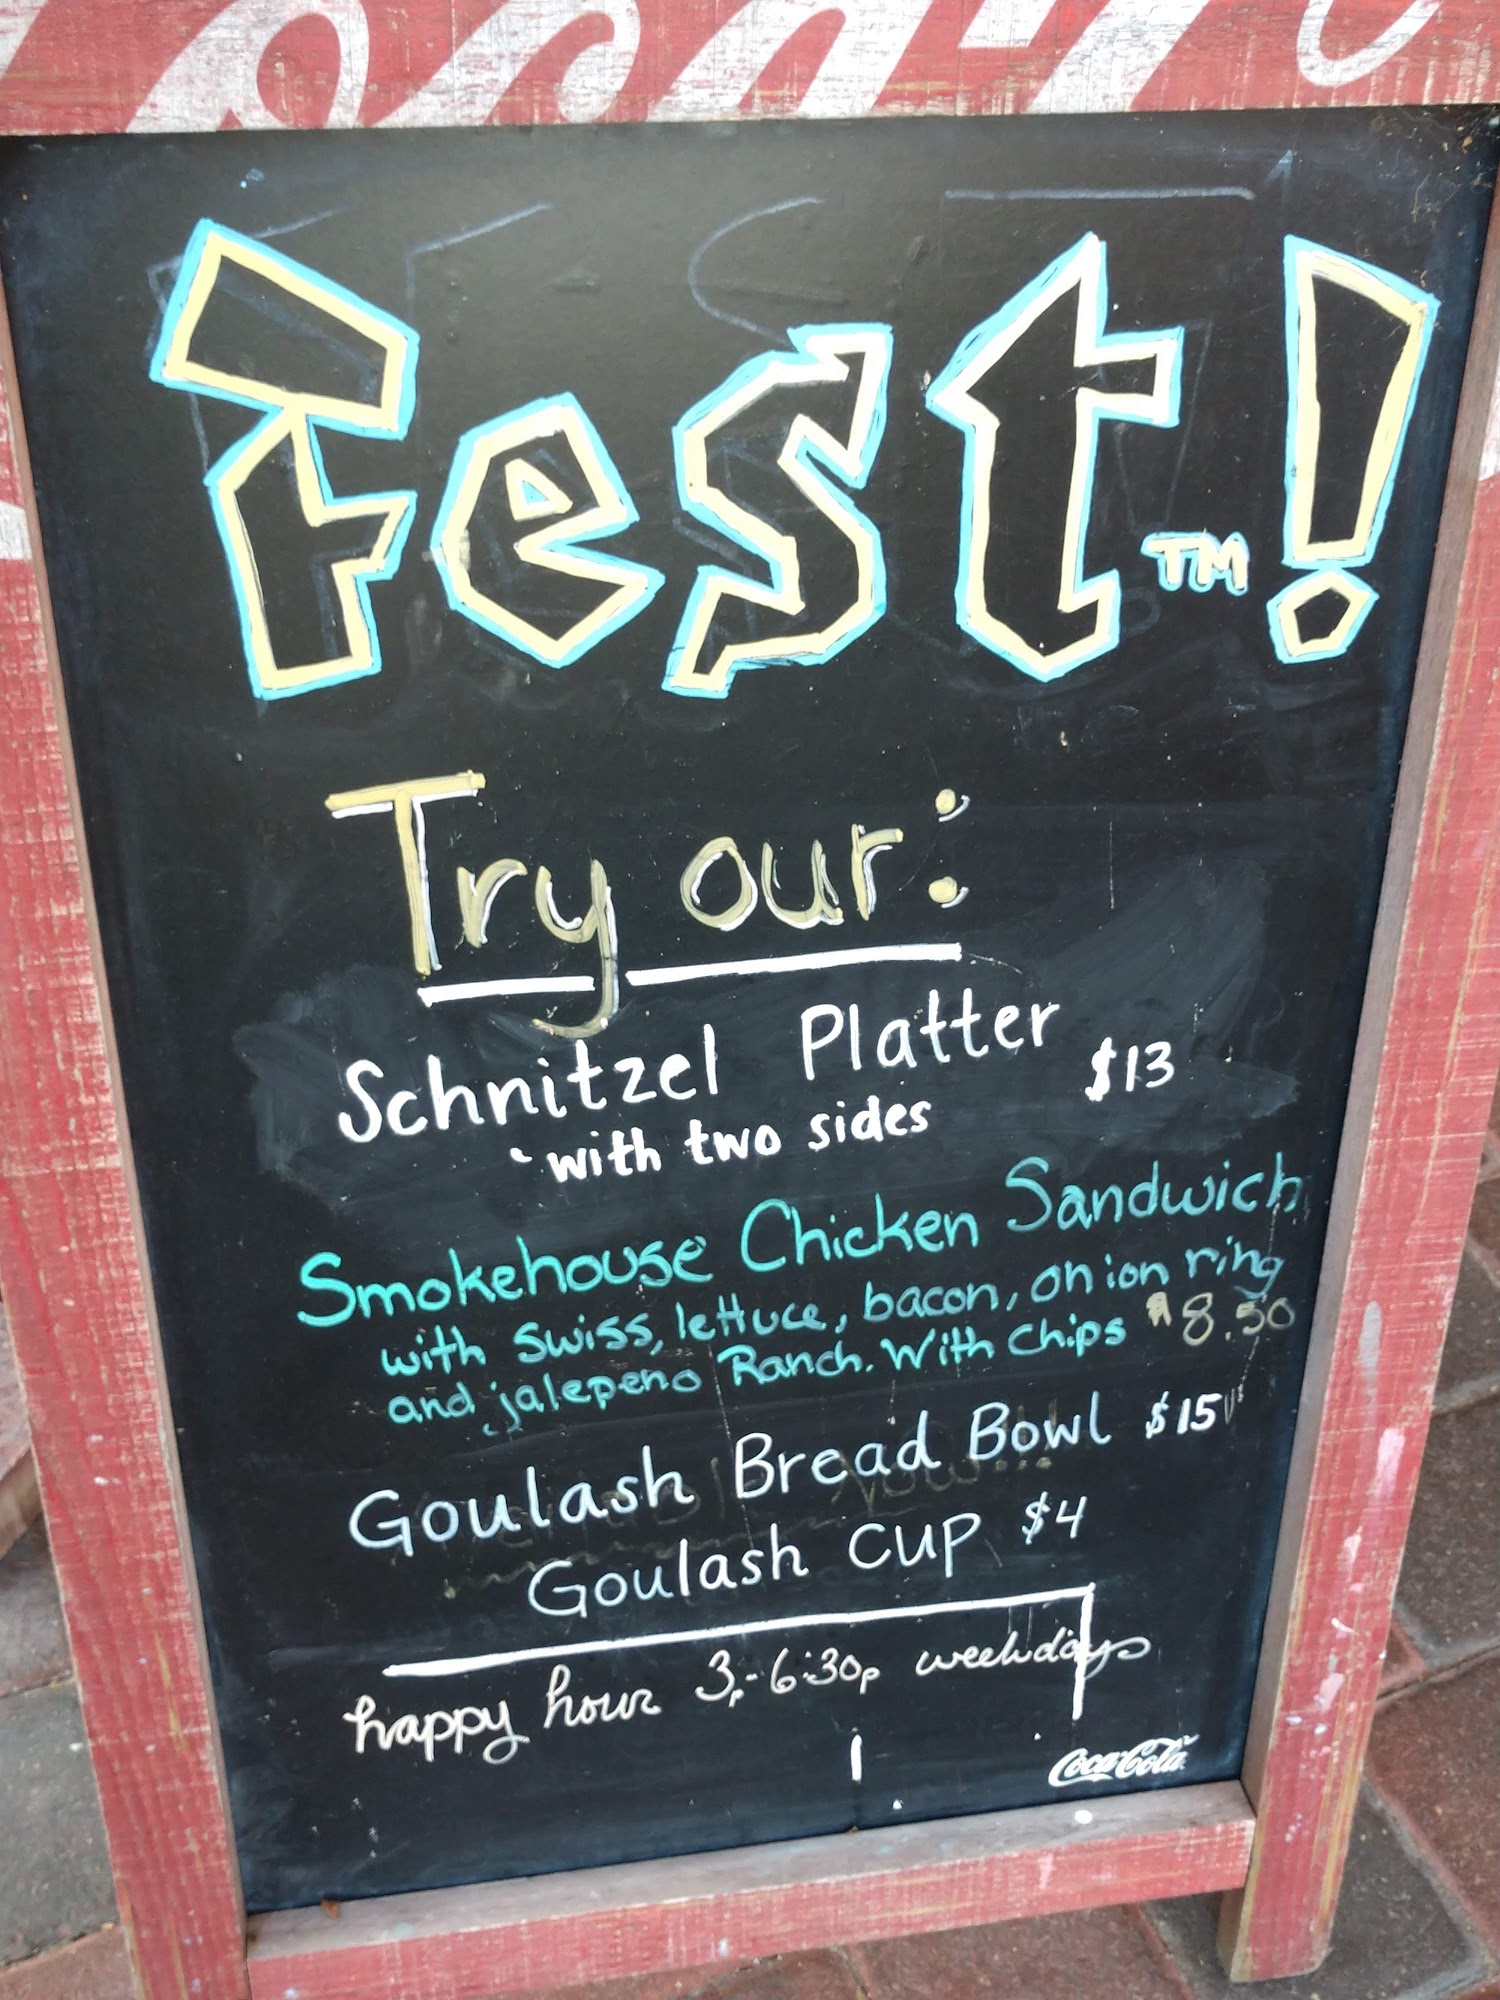 Fest™!
Try our:
Schnitzel Platter $13
with two sides
Smokehouse Chicken Sandwich
with Swiss, lettuce, bacon, onion ring
and jalepeno Ranch. With Chips $8.50
Goulash Bread Bowl $15
Goulash Cup $4
happy hour 3p-6:30p weekdays
Coca-Cola